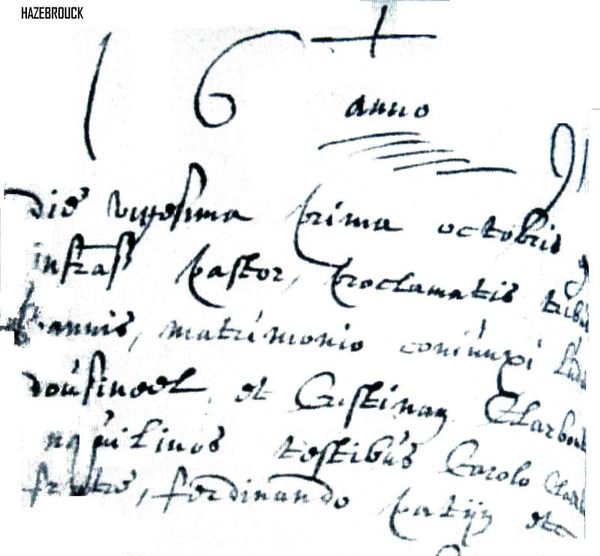 HAZEBROUCK
16
anno
die vigesima prima octobris
infrasc pastor, proclamatis tribu
bannis, matrimonio coniunxi
et Cristinam Clarbout
inquilinos testibus Carolo Clarb
fratre, ferdinando et